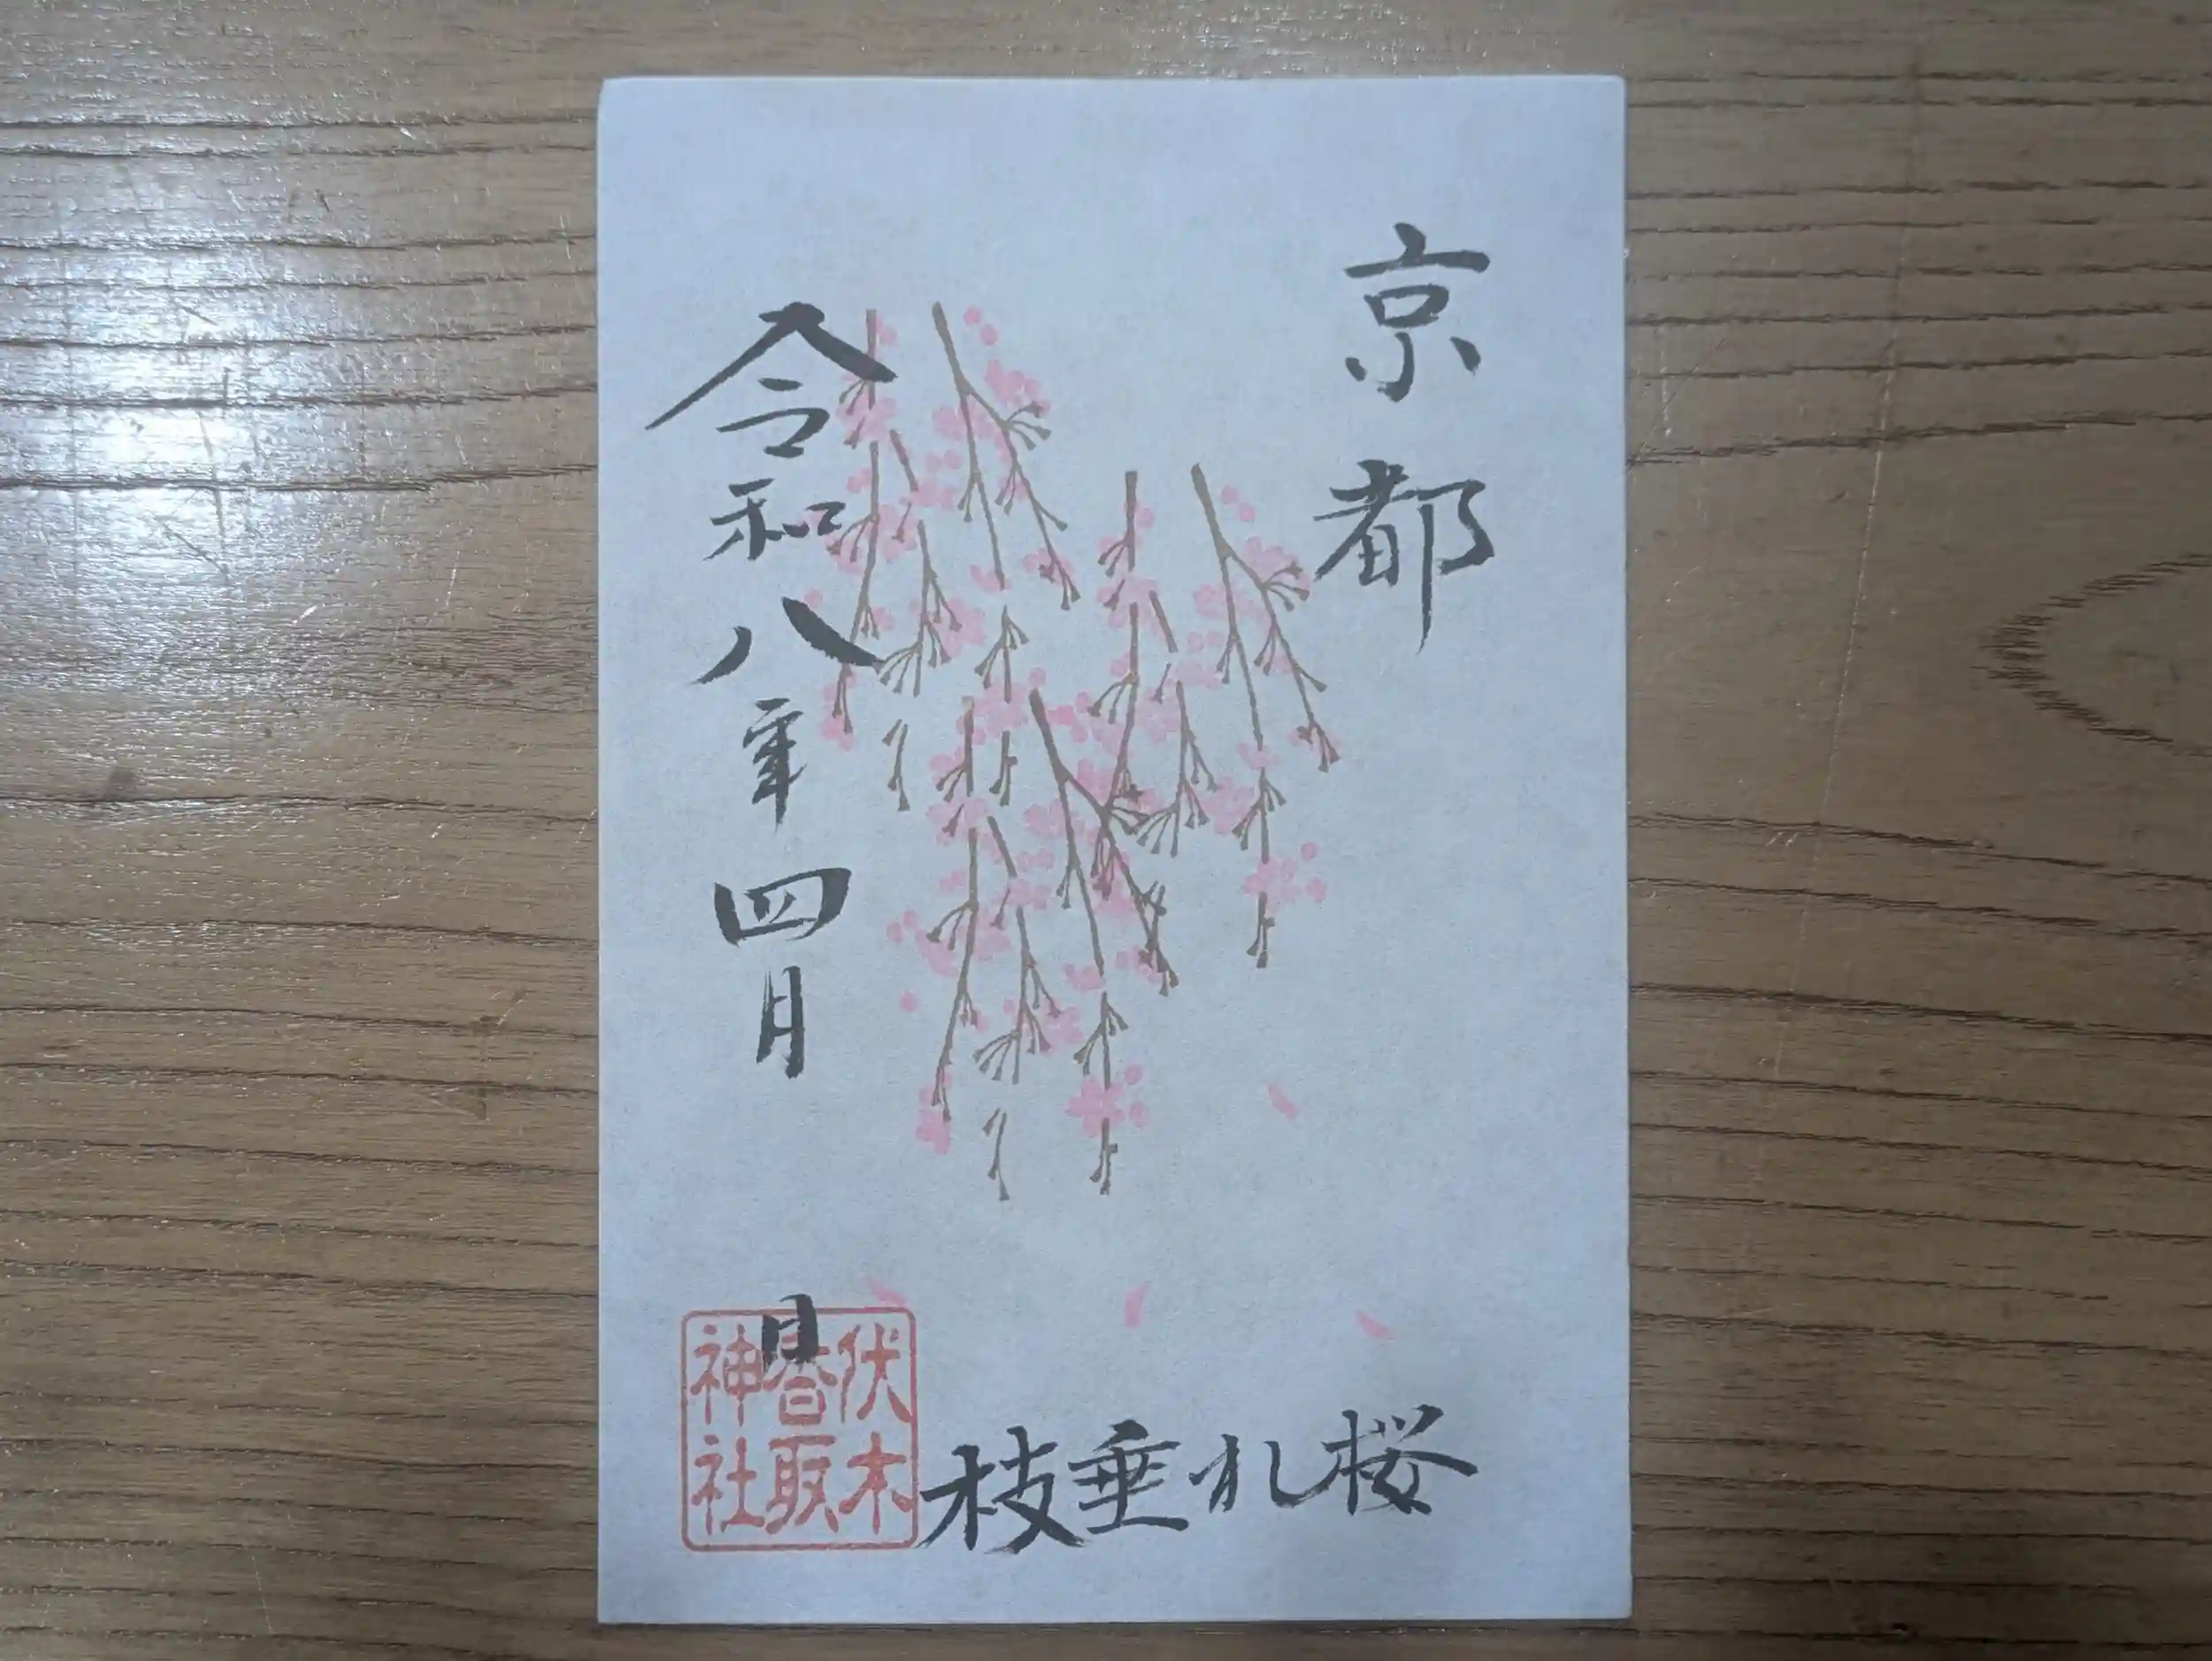 京都
枝垂れ桜
令和八年四月 日
伏木香取神社